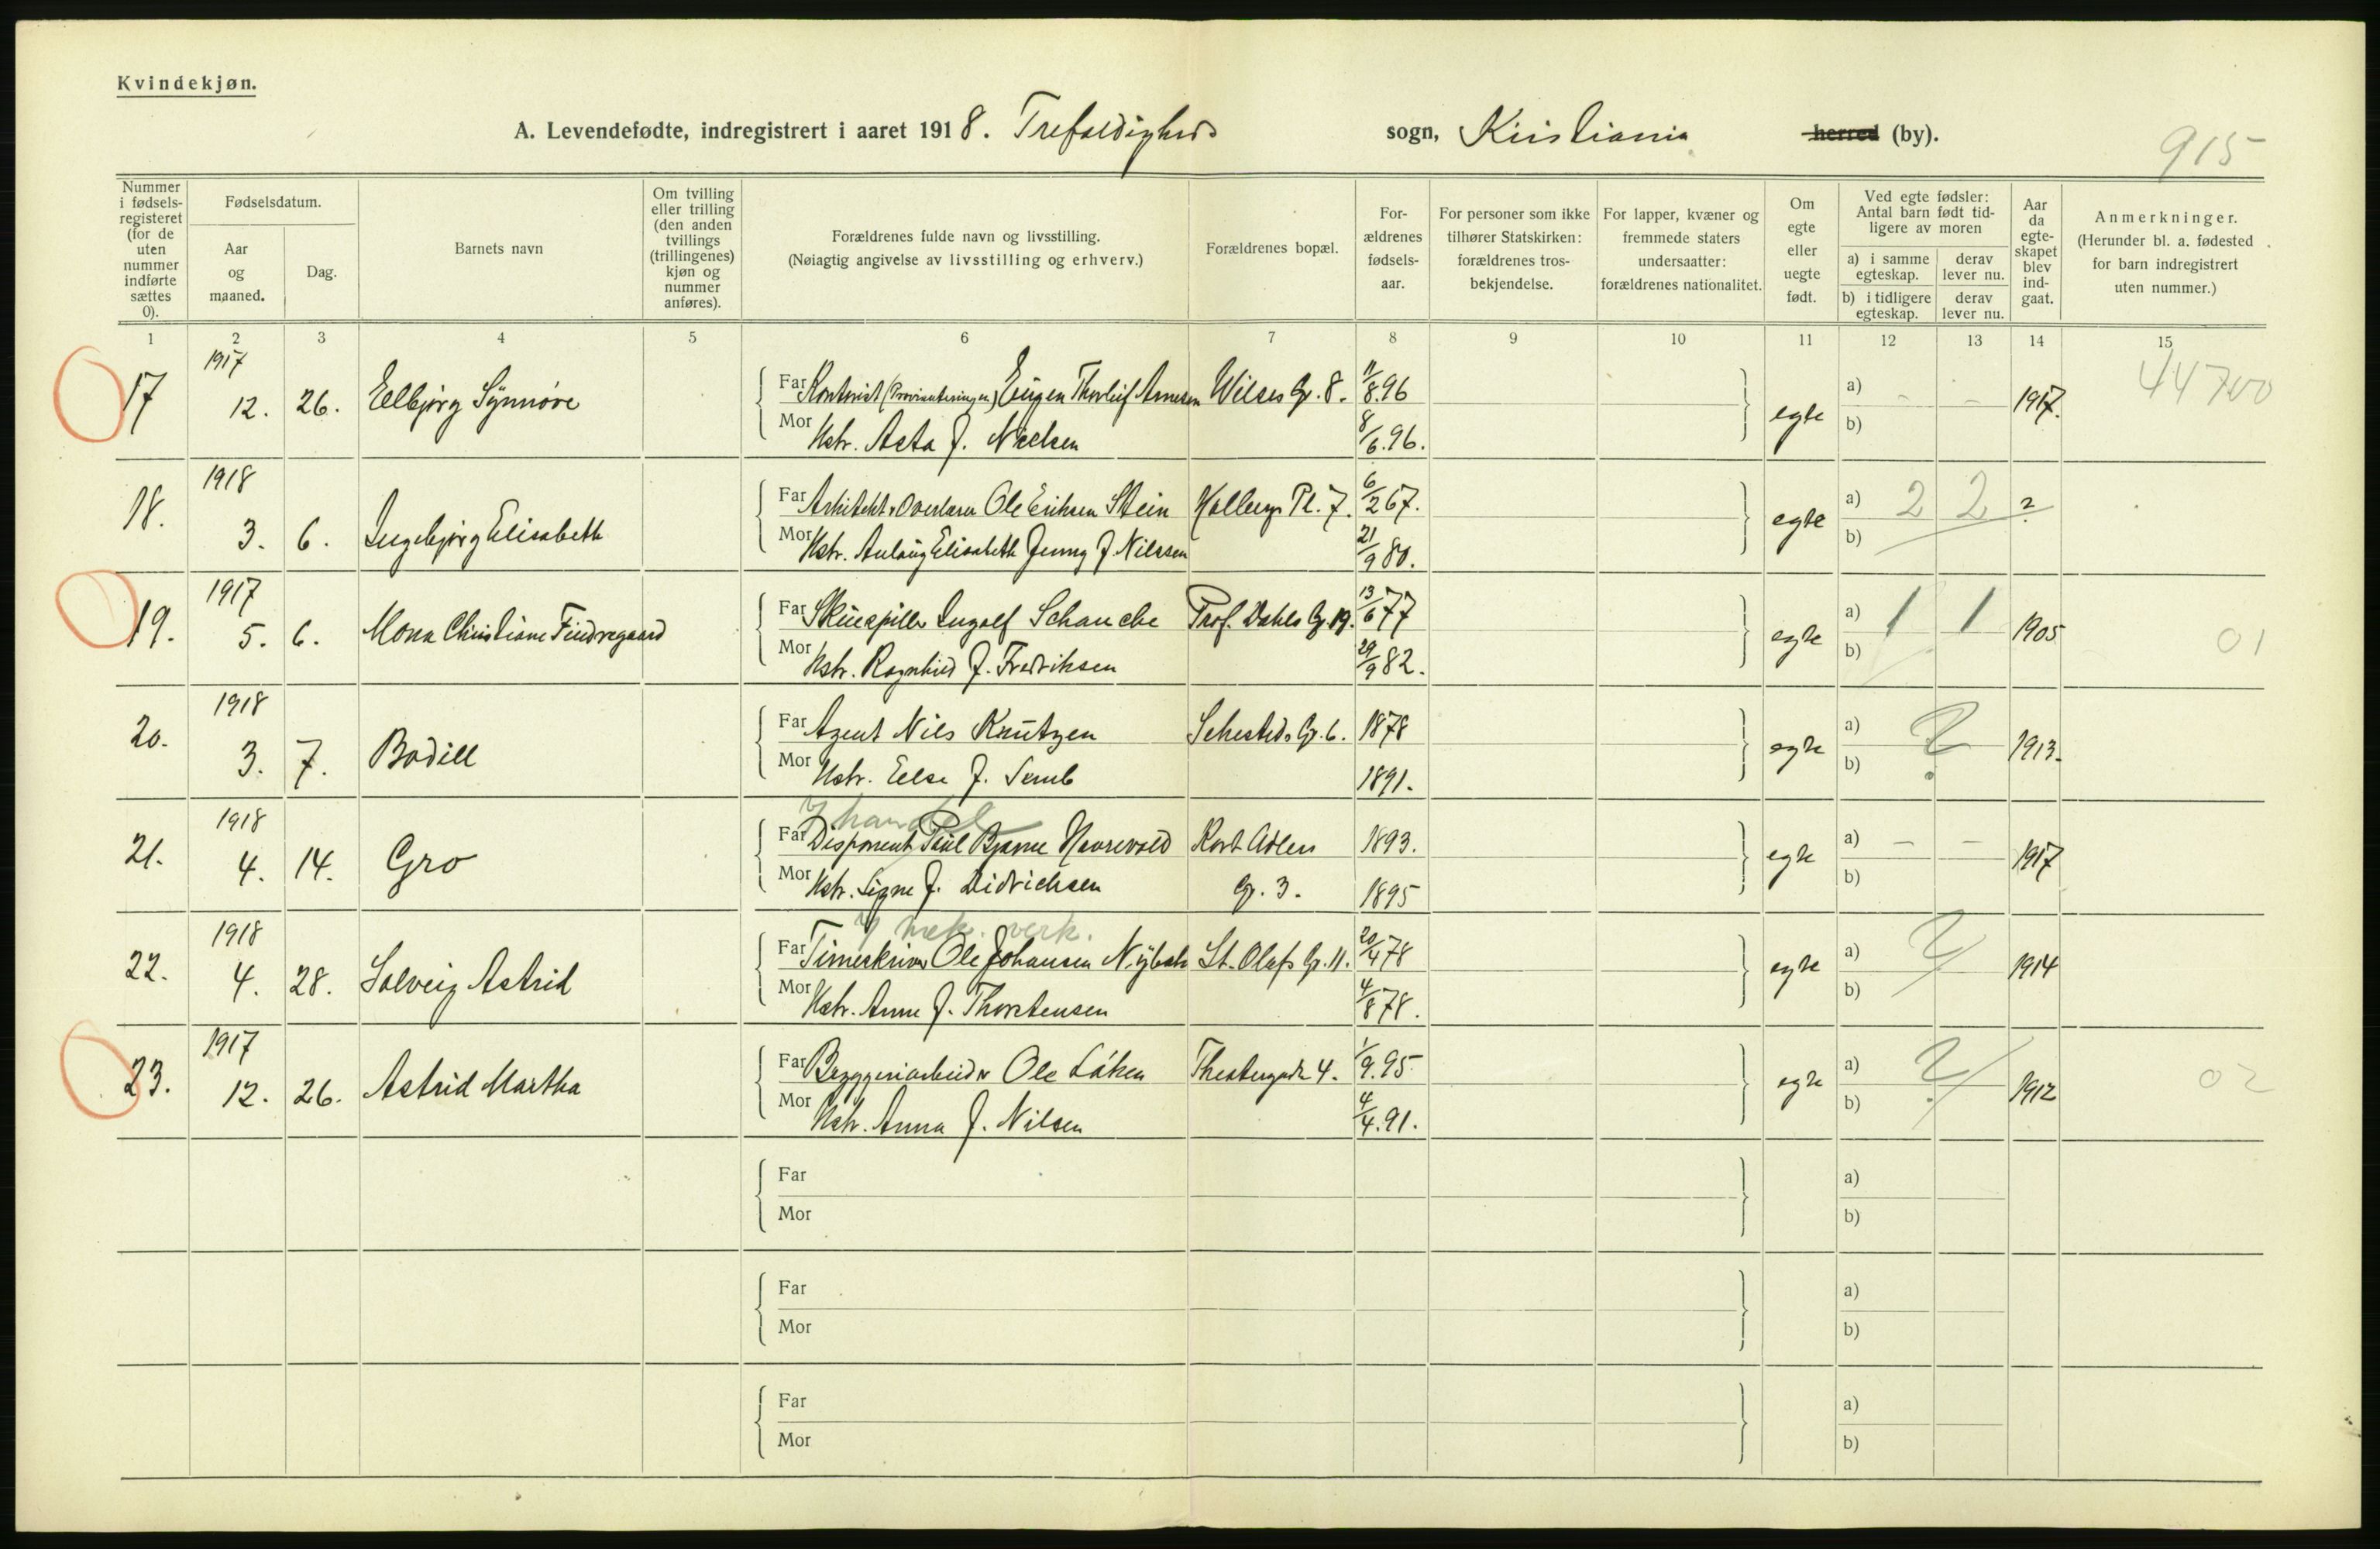 Kvindekjøn.
A. Levendefødte, indregistrert i aaret 1918. Trefoldigheds sogn, Kristiania herred (by).
915
Nummer i fødselsregisteret (for de uten nummer indførte sættes 0).
Fødselsdatum.
Aar og maaned.
Dag.
Barnets navn
Om tvilling eller trilling (den anden tvillings (trillingenes) kjøn og nummer anføres).
Forældrenes fulde navn og livsstilling.
(Nøiagtig angivelse av livsstilling og erhverv.)
Forældrenes bopæl.
Forældrenes fødselsaar.
For personer som ikke tilhører Statskirken: forældrenes trosbekjendelse.
For lapper, kvæner og fremmede staters undersaatter: forældrenes nationalitet.
Om egte eller uegte født.
Ved egte fødsler: Antal barn født tidligere av moren
a) i samme egteskap.
derav lever nu.
b) i tidligere egteskap.
derav lever nu.
Aar da egteskapet blev indgaat.
Anmerkninger.
(Herunder bl. a. fødested for barn indregistrert uten nummer.)
1 2 3 4 5 6 7 8 9 10 11 12 13 14 15
17 1917 12. 26. Ellbjørg Synnøve Far Kontorist (Provianteringen) Eugen Thorleif Arnesen Wilses G. 8. 11/8.96 egte a) - - 1917. 44700
Mor Hstr. Asta f. Nielsen 8/6.96. b)
18. 1918 3. 6. Ingebjørg Elisabeth Far Arkitekt, Overlærer Ole Eriksen Stein Holbergs Pl. 7. 6/2 67. egte a) 2 2 ?
Mor Hstr. Aslaug Elisabeth Jenny f. Nilssen 21/9 80. b)
19. 1917 5. 6. Mona Christiane Findregaard Far Skuespiller Ingolf Schanche Prof. Dahls G. 19. 13/6 77 egte a) 1 1 1905 01
Mor Hstr. Ragnhild f. Fredriksen 29/9 82. b)
20. 1918 3. 7. Bodill Far Agent Nils Knutzen Sehesteds G. 6. 1878 egte a) ? 1913.
Mor Hstr. Else f. Semb 1891. b)
21. 1918 4. 14. Gro Far Disponent Paul Bjarne Havrevold Kort Adlers 1893. egte a) - - 1917
i handel
Mor Hstr. Signe f. Didrichsen G. 3. 1895 b)
22. 1918 4. 28. Solveig Astrid Far Timeskriver Ole Johansen Nybak St. Olafs G. 11. 20/4 78 egte a) ? 1914
mek. verk.
Mor Hstr. Anne f. Thorstensen 4/8 78. b)
23. 1917 12. 26. Astrid Martha Far Bryggeriarbeider Ole Løken Theatergaden 4. 1/9.95. egte a) ? 1912 02
Mor Hstr. Anna f. Nilsen 4/4.91. b)
Far a)
Mor b)
Far a)
Mor b)
Far a)
Mor b)